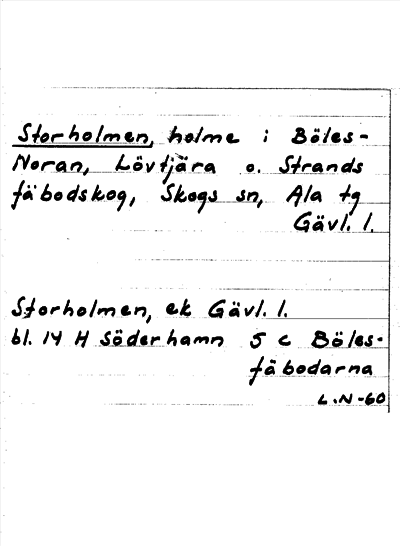 Storholmen, holme i Böles-
Noran, Lövtjära o. Strands
fäbodskog, Skogs sn, Ala tg
Gävl. l.
Storholmen, ek Gävl. l.
bl. 14 H Söderhamn 5 c Böles-
fäbodarna
L.N-60